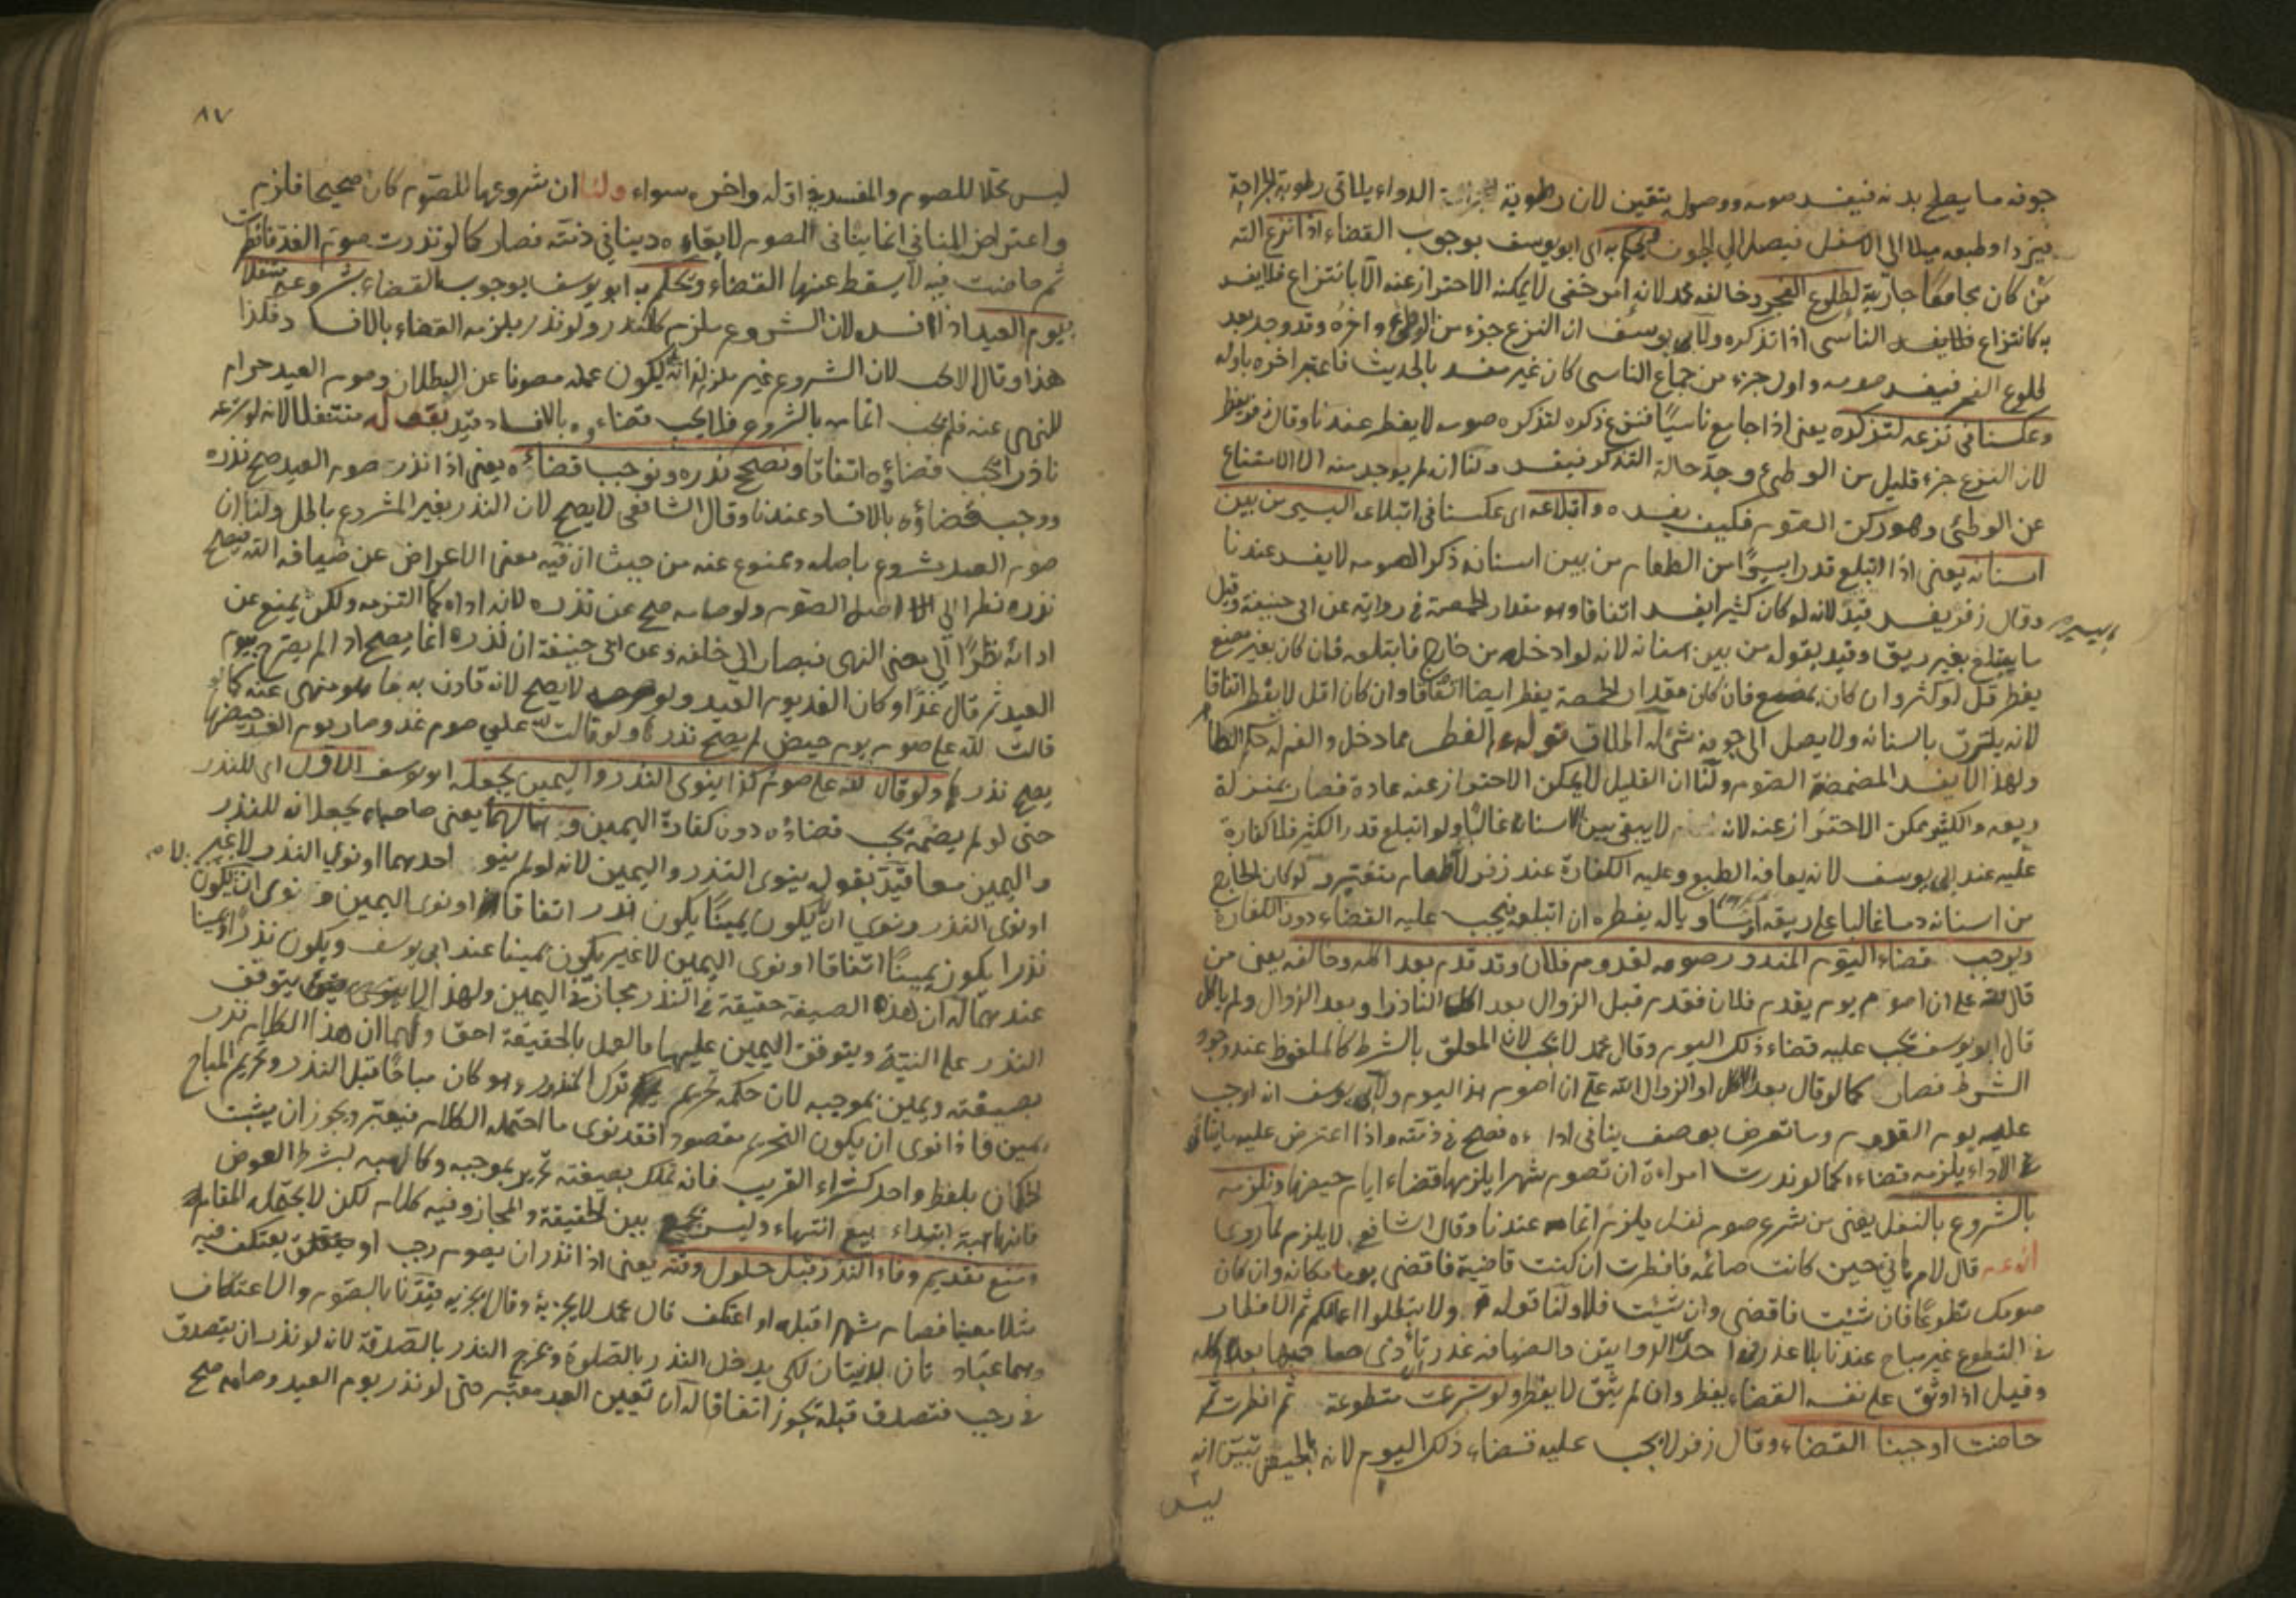 جوفه ما يصلح بدنه فيفسد صومه ووصوله متيقن لان رطوبة الدواء يلاقى رطوبة الجراحة
فيزداد طبعه ميلا الى الاسفل فيصل الى الجوف فيحكم به اى ابو يوسف بوجوب القضاء اذا نزع آلته
من كان مجامعا جارية لطلوع الفجر وخالفه محمد لانه امر خفى لا يمكنه الاحتراز عنه الا بانتزاع فلا يفسد
به كانتزاع الناسى اذا تذكره ولابى يوسف ان النزع جزء من الوطئ واخره وقد وجد بعد
طلوع الفجر فيفسد صومه واول جزء من جماع الناسى كان غير مفسد بالحديث فاعتبر اخره باوله
وعكسنا فى نزعه لتذكره يعنى اذا جامع ناسيا فنزع ذكره لتذكره صومه لا يفطر عندنا وقال زفر يفطر
لان النزع جزء قليل من الوطئ وجد حالة التذكر فيفسد ولنا انه لم يوجد منه الا الامتناع
عن الوطئ وهو ركن الصوم فكيف يفسده وابتلاعه اى عكسنا فى ابتلاعه اليسير من بين
اسنانه يعنى اذا ابتلع قدرا يسيرا من الطعام من بين اسنانه ذكر الصومه لا يفسد عندنا
وقال زفر يفسد قيد لانه لو كان كثيرا يفسد اتفاقا وهو مقدار الحمصة فى رواية عن ابى حنيفة وقيل
باليسير
ما يبتلع بغير ريق وقيد بقوله من بين اسنانه لانه لو ادخله من خارج فابتلعه فان كان بغير مضغ
يفطر قل او كثر وان كان بمضغ فان كان مقدار الحمصة يفطر ايضا اتفاقا وان كان اقل لا يفطر اتفاقا
لانه يلتزق باسنانه ولا يصل الى جوفه شئ له اطلاق قوله الفطر مما دخل والفم له حكم الظاهر
ولهذا لا يفسد المضمضة الصوم ولنا ان القليل لا يمكن الاحتراز عنه عادة فصار بمنزلة
ريقه والكثير يمكن الاحتراز عنه لانه لا يبقى بين الاسنان غالبا ولو ابتلع قدر الكثير فلا كفارة
عليه عند ابى يوسف لانه يعافه الطبع وعليه الكفارة عند زفر لانه طعام متغير ولو كان الخارج
من اسنانه دما غالبا على ريقه او مساويا له يفطره ان ابتلعه فيجب عليه القضاء دون الكفارة
ويوجب قضاء اليوم المنذور صومه لقدوم فلان وقد قدم بعد اكله وخالفه يعنى من
قال لله على ان اصوم يوم يقدم فلان فقدم قبل الزوال بعد اكل الناذر او بعد الزوال ولم ياكل
قال ابو يوسف يجب عليه قضاء ذلك اليوم وقال محمد لا يجب لان المعلق بالشرط كالملفوظ عند وجود
الشرط فصار كما لو قال بعد الاكل او الزوال لله على ان اصوم هذا اليوم ولابى يوسف انه اوجب
عليه يوم القدوم وما تعرض بوصف ينافى اداءه فصح فى ذمته واذا اعترض عليه ما ينافى
الاداء يلزمه قضاءه كما لو نذرت امراءة ان تصوم شهرا يلزمها قضاء ايام حيضها ونلزمه
بالشروع بالنفل يعنى من شرع صوم نفل يلزم اتمامه عندنا وقال الشافعى لا يلزم لما روى
انه عم قال لام هانى حين كانت صائمه فافطرت ان كنت قاضية فاقضى يوما مكانه وان كان
صومك تطوعا فان شئت فاقضى وان شئت فلا ولنا قوله ولا تبطلوا اعمالكم ثم الافطار
فى التطوع غير مباح عندنا بلا عذر فى احدى الروايتين والضيافة عذر
وقيل اذا وثق على نفسه القضاء يفطر وان لم يثق لا يفطر ولو شرعت متطوعة ثم افطرت ثم
حاضت اوجبنا القضاء وقال زفر لا يجب عليه قضاء ذلك اليوم لانه بالحيض تبين انه
ليس
٨٧
ليس محلا للصوم والمفسد فى اوله واخره سواء ولنا ان شروعها للصوم كان صحيحا فلزم
واعتراض المنافى انما ينافى الصوم لا بقاءه دينا فى ذمته فصار كما لو نذرت صوم الغد فافطرت
ثم حاضت فيه لا يسقط عنها القضاء وتكلم به ابو يوسف بوجوب القضاء بشروعه متنفلا
بيوم العيد اذا افسد لان الشروع ملزم كالنذر ولو نذر يلزمه القضاء بالافساد فكذا
هذا وقال لا يجب لان الشروع غير ملزم لذاته ليكون عمله مصونا عن البطلان وصوم العيد حرام
للنهى عنه فلم يجب اتمامه بالشروع فلا يجب قضاءه بالافساد وقيد بقوله متنفلا لانه لو شرعه
ناذرا يجب قضاؤه اتفاقا ونصحح نذره ونوجب قضاءه يعنى اذا نذر صوم العيد صح نذره
ووجب قضاؤه بالافساد عندنا وقال الشافعى لا يصح لان النذر بغير المشروع باطل ولنا ان
صوم العيد مشروع باصله وممنوع عنه من حيث ان فيه معنى الاعراض عن ضيافة الله فيصح
نذره نظرا الى اصل الصوم ولو صامه صح عن نذره لانه اداه كما التزمه ولكن يمنع عن
ادائه نظرا الى معنى النهى فيصار الى خلفه وعن ابى حنيفة ان نذره انما يصح اذا لم يصرح بيوم
العيد ثم قال غدا وكان الغد يوم العيد ولو لا يصح لانه قارن به ما هو منهى عنه كما لو
قالت لله على صوم يوم حيض لم يصح نذرها ولو قالت لله على صوم غد وصار يوم الغد حيضها
يصح نذرها ولو قال لله على صوم كذا ينوى النذر واليمين يجعله ابو يوسف الاول اى للنذر
حتى لو لم يصمه يجب قضاؤه دون كفارة اليمين وهما لهما يعنى صاحباه يجعلانه للنذر
واليمين معا قيد بقوله ينوى النذر واليمين لانه لو لم ينو احدهما او نوى النذر لا غير
او نوى النذر ونوى ان لا يكون يمينا يكون نذرا اتفاقا او نوى اليمين ونوى ان لا يكون
نذرا يكون يمينا اتفاقا او نوى اليمين لا غير يكون يمينا عند ابى يوسف ويكون نذرا ويمينا
عندهما له ان هذه الصيغة حقيقة فى النذر مجاز فى اليمين ولهذا لا يتوقف
النذر على النية ويتوقف اليمين عليها والعمل بالحقيقة احق ولهما ان هذا الكلام نذر
بصيغته ويمين بموجبه لان حكمه تحريم ترك المنذور وهو كان مباحا قبل النذر وتحريم المباح
يمين فاذا نوى ان يكون التحريم مقصودا فقد نوى ما احتمله الكلام فيعتبر ويجوز ان يثبت
الحكمان بلفظ واحد كشراء القريب فانه تملك بصيغته تحرير بموجبه وكالهبه بشرط العوض
فانها هبة ابتداء بيع انتهاء وليس بجمع بين الحقيقة والمجاز وفيه كلام لكن لا يحتمله المقام
ومنع تقديم وفاء النذر قبل حلول وقته يعنى اذا نذر ان يصوم رجب او يعتكف فيه
مثلا معينا فصام شهرا قبله او اعتكف قال محمد لا يجزيه وقال يجزيه قيدنا بالصوم والاعتكاف
وهما عبادتان بدنيتان لكى يدخل النذر بالصلوة ويخرج النذر بالصدقة لانه لو نذر ان يتصدق
فى رجب فتصدق قبله يجوز اتفاقا له ان تعيين العبد معتبر حتى لو نذر يوم العيد وصامه صح